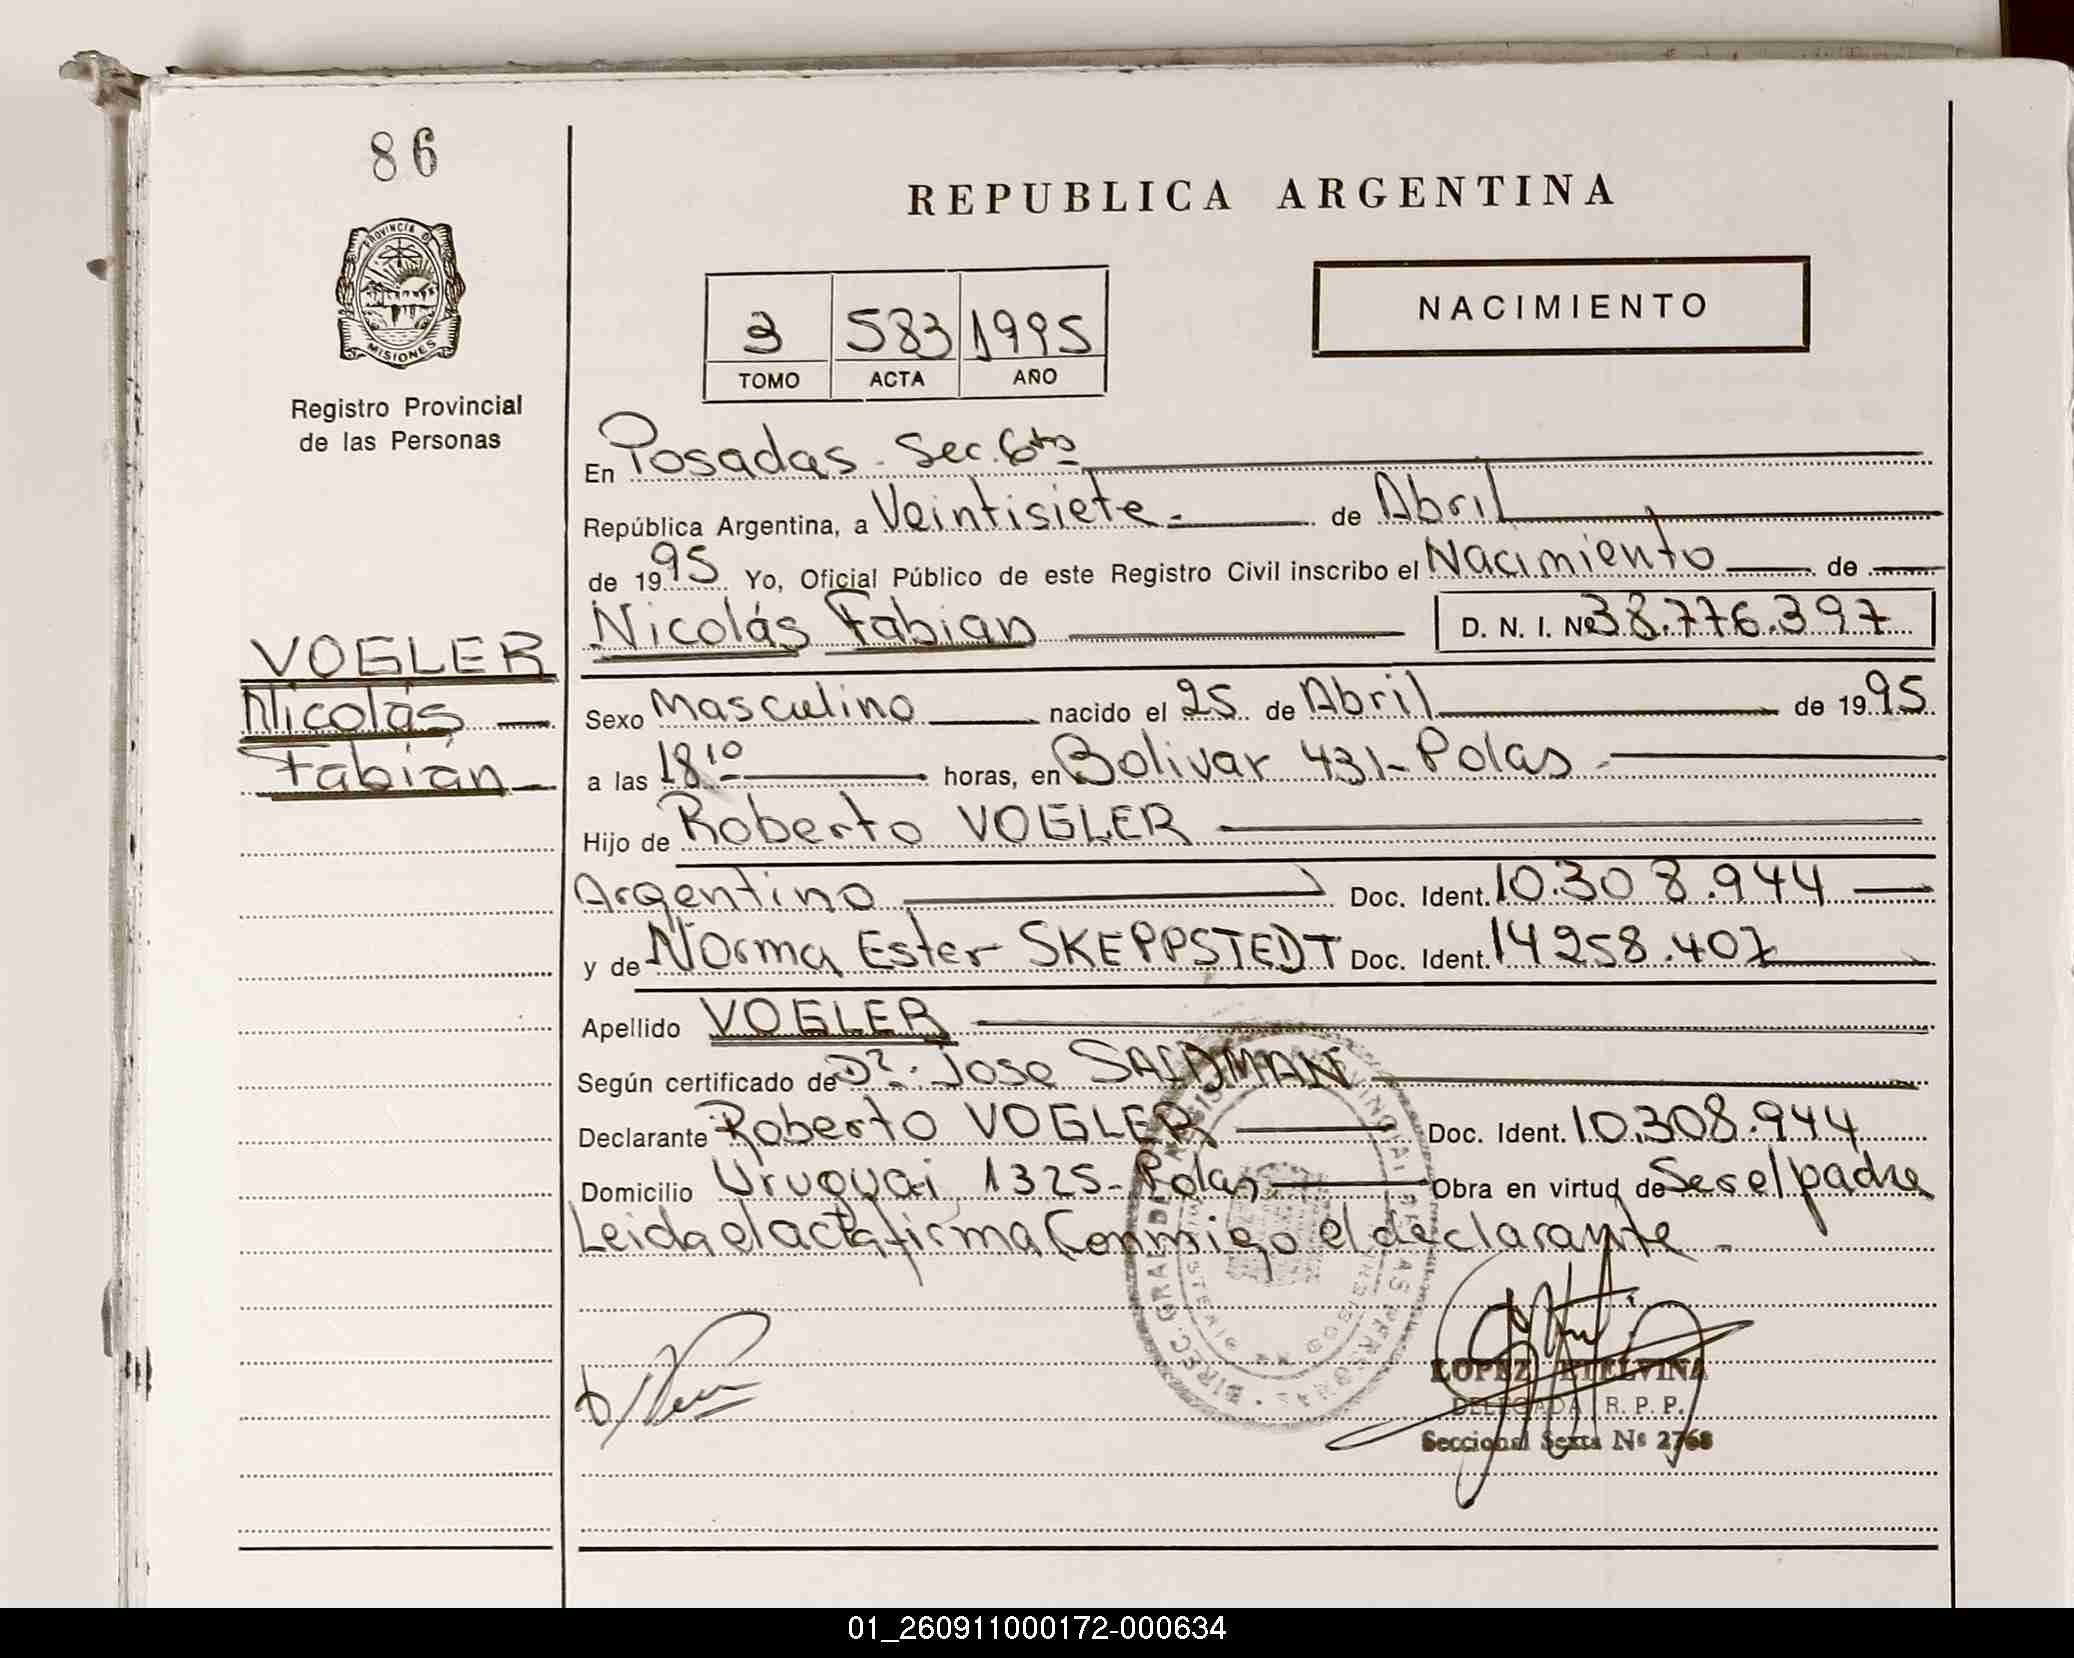 86
REPUBLICA ARGENTINA
PROVINCIA D
MISIONES
Registro Provincial
de las Personas
NACIMIENTO
3 583 1995
TOMO ACTA AÑO
En Posadas - Sec. 6ta
República Argentina, a Veintisiete - de Abril
de 1995 Yo, Oficial Público de este Registro Civil inscribo el Nacimiento de
Nicolás Fabian D. N. I. Nº 38.776.397
VOGLER
Nicolás
Fabián
Sexo Masculino nacido el 25 de Abril de 1995
a las 18 10 horas, en Bolivar 431 - Pdas -
Hijo de Roberto VOGLER
Argentino Doc. Ident. 10.308.944
y de Norma Ester SKEPPSTEDT Doc. Ident. 14 258.407
Apellido VOGLER
Según certificado de Dr. Jose
Declarante Roberto VOGLER Doc. Ident. 10.308.944
Domicilio Uruguai 1325 - Pdas Obra en virtud de Ser el padre
Leida el acta firma Conmigo el declarante -
LOPEZ ETELVINA
DELEGADA R. P. P.
Seccional Sexta Nº 2768
01_260911000172-000634